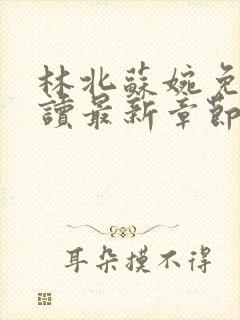 林北蘇婉免
讀最新章節
耳朵摸不得